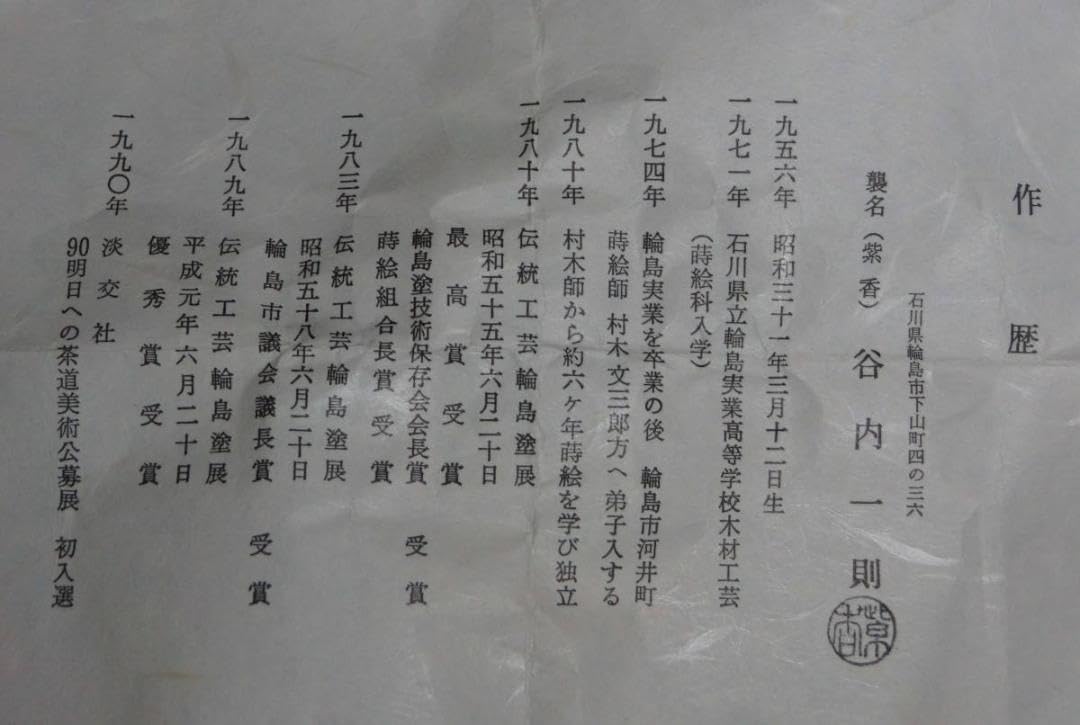 作歴
石川県輪島市下山町四の三六
襲名（紫香）谷内一則
紫香
一九五六年 昭和三十一年三月十二日生
一九七一年 石川県立輪島実業高等学校木材工芸
（蒔絵科入学）
一九七四年 輪島実業を卒業の後 輪島市河井町
蒔絵師 村木文三郎方へ弟子入する
一九八十年 村木師から約六ヶ年蒔絵を学び独立
一九八十年 伝統工芸輪島塗展
昭和五十五年六月二十日
最高賞受賞
輪島塗技術保存会会長賞 受賞
蒔絵組合長賞受賞
一九八三年 伝統工芸輪島塗展
昭和五十八年六月二十日
輪島市議会議長賞 受賞
一九八九年 伝統工芸輪島塗展
平成元年六月二十日
優秀賞受賞
一九九〇年 淡交社
90明日への茶道美術公募展 初入選